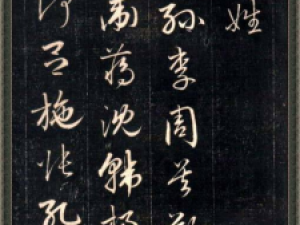 姓
孙李周吴郑
卫蒋沈韩杨
何吕施张孔